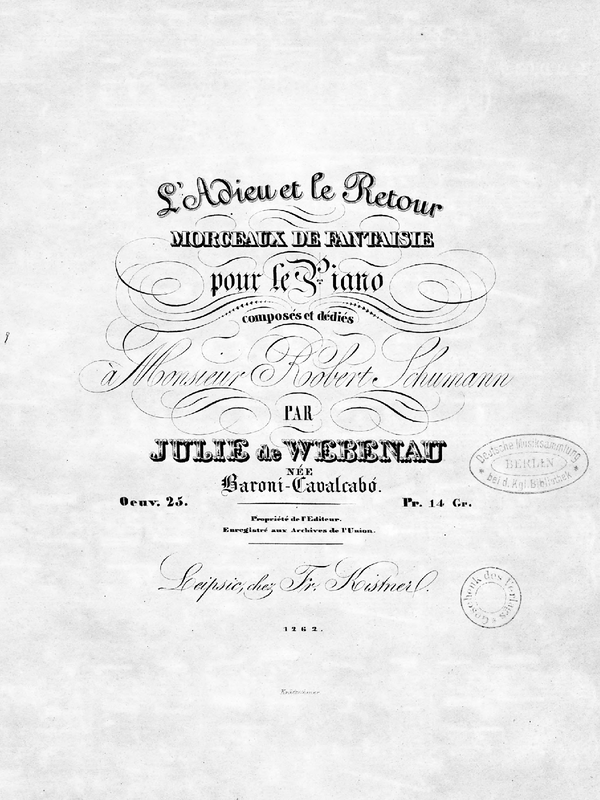 L'Adieu et le Retour
MORCEAUX DE FANTAISIE
pour le Piano
composés et dédiés
à Monsieur Robert Schumann
PAR
JULIE de WEBENAU
NÉE
Baroni-Cavalcabó.
Oeuv. 25. Pr. 14 Gr.
Propriété de l'Editeur.
Enregistré aux Archives de l'Union.
Leipsic, chez Fr. Kistner.
1262.
Deutsche Musiksammlung
BERLIN
bei d. Kgl. Bibliothek
Geschenk des Verlages